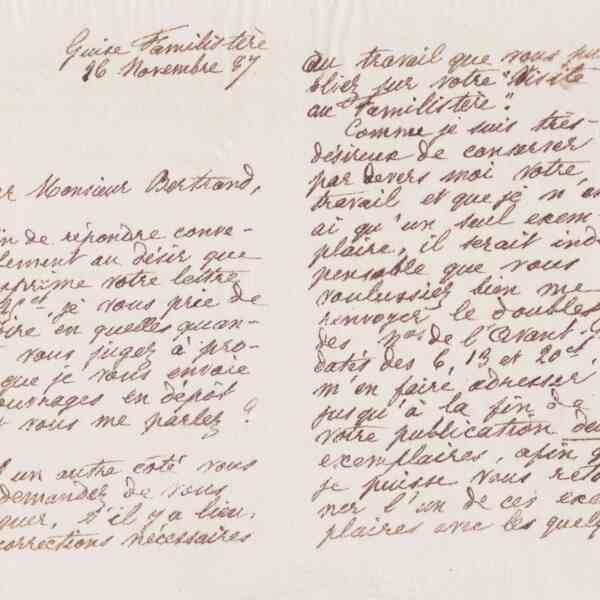 Guise Familistère
26 Novembre 87
Monsieur Bertrand,
de répondre conve-
lement au désir que
exprime votre lettre
26 ct, je vous prie de
dire en quelles quan-
vous jugez à pro-
que je vous envoie
ouvrages en dépôt
vous me parlez ?
un autre côté vous
demandez de vous
quer, s'il y a lieu,
corrections nécessaires
au travail que vous pu-
bliez sur votre "Visite
au Familistère".
Comme je suis très-
désireux de conserver
par devers moi votre
travail et que je n'en
ai qu'un seul exem-
plaire, il serait indis
pensable que vous
voulussiez bien me
renvoyer le doubles
des nos de l'Avant-
datés des 6, 13 et 20 ct,
m'en faire adresser
jusqu'à la fin de
votre publication deux
exemplaires, afin q
je puisse vous retour
ner l'un de ces exem
plaires avec les quelq